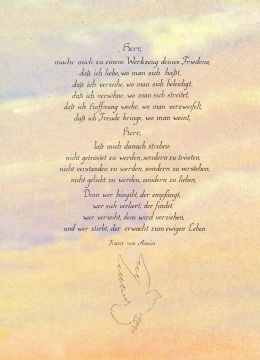 Herr,
mache mich zu einem Werkzeug deines Friedens,
daß ich liebe, wo man sich haßt,
daß ich verzeihe, wo man sich beleidigt,
daß ich versöhne, wo man sich streitet,
daß ich Hoffnung wecke, wo man verzweifelt,
daß ich Freude bringe, wo man weint,
Herr,
laß mich danach streben:
nicht getröstet zu werden, sondern zu trösten,
nicht verstanden zu werden, sondern zu verstehen,
nicht geliebt zu werden, sondern zu lieben,
Denn wer hingibt, der empfängt,
wer sich verliert, der findet,
wer verzeiht, dem wird verziehen,
und wer stirbt, der erwacht zum ewigen Leben.
Franz von Assisi